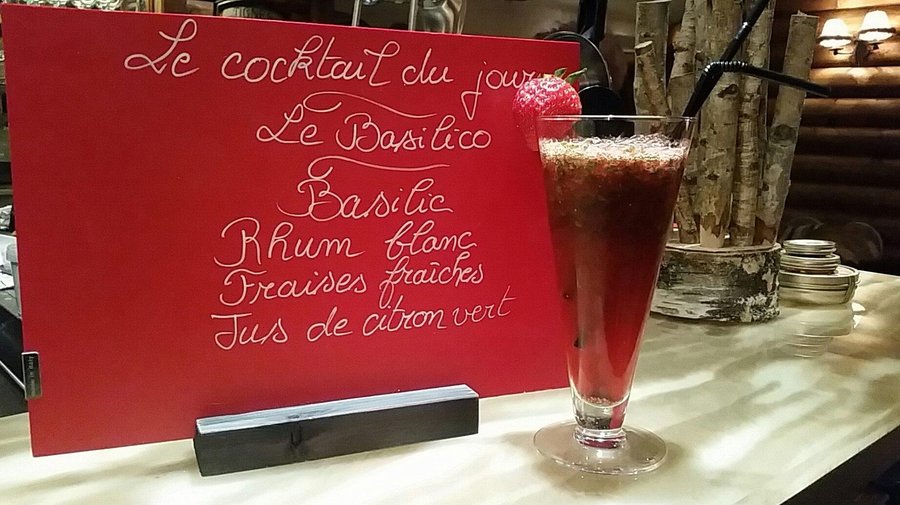 Le cocktail du jour
Le Basilico
Basilic
Rhum blanc
Fraises fraîches
Jus de citron vert